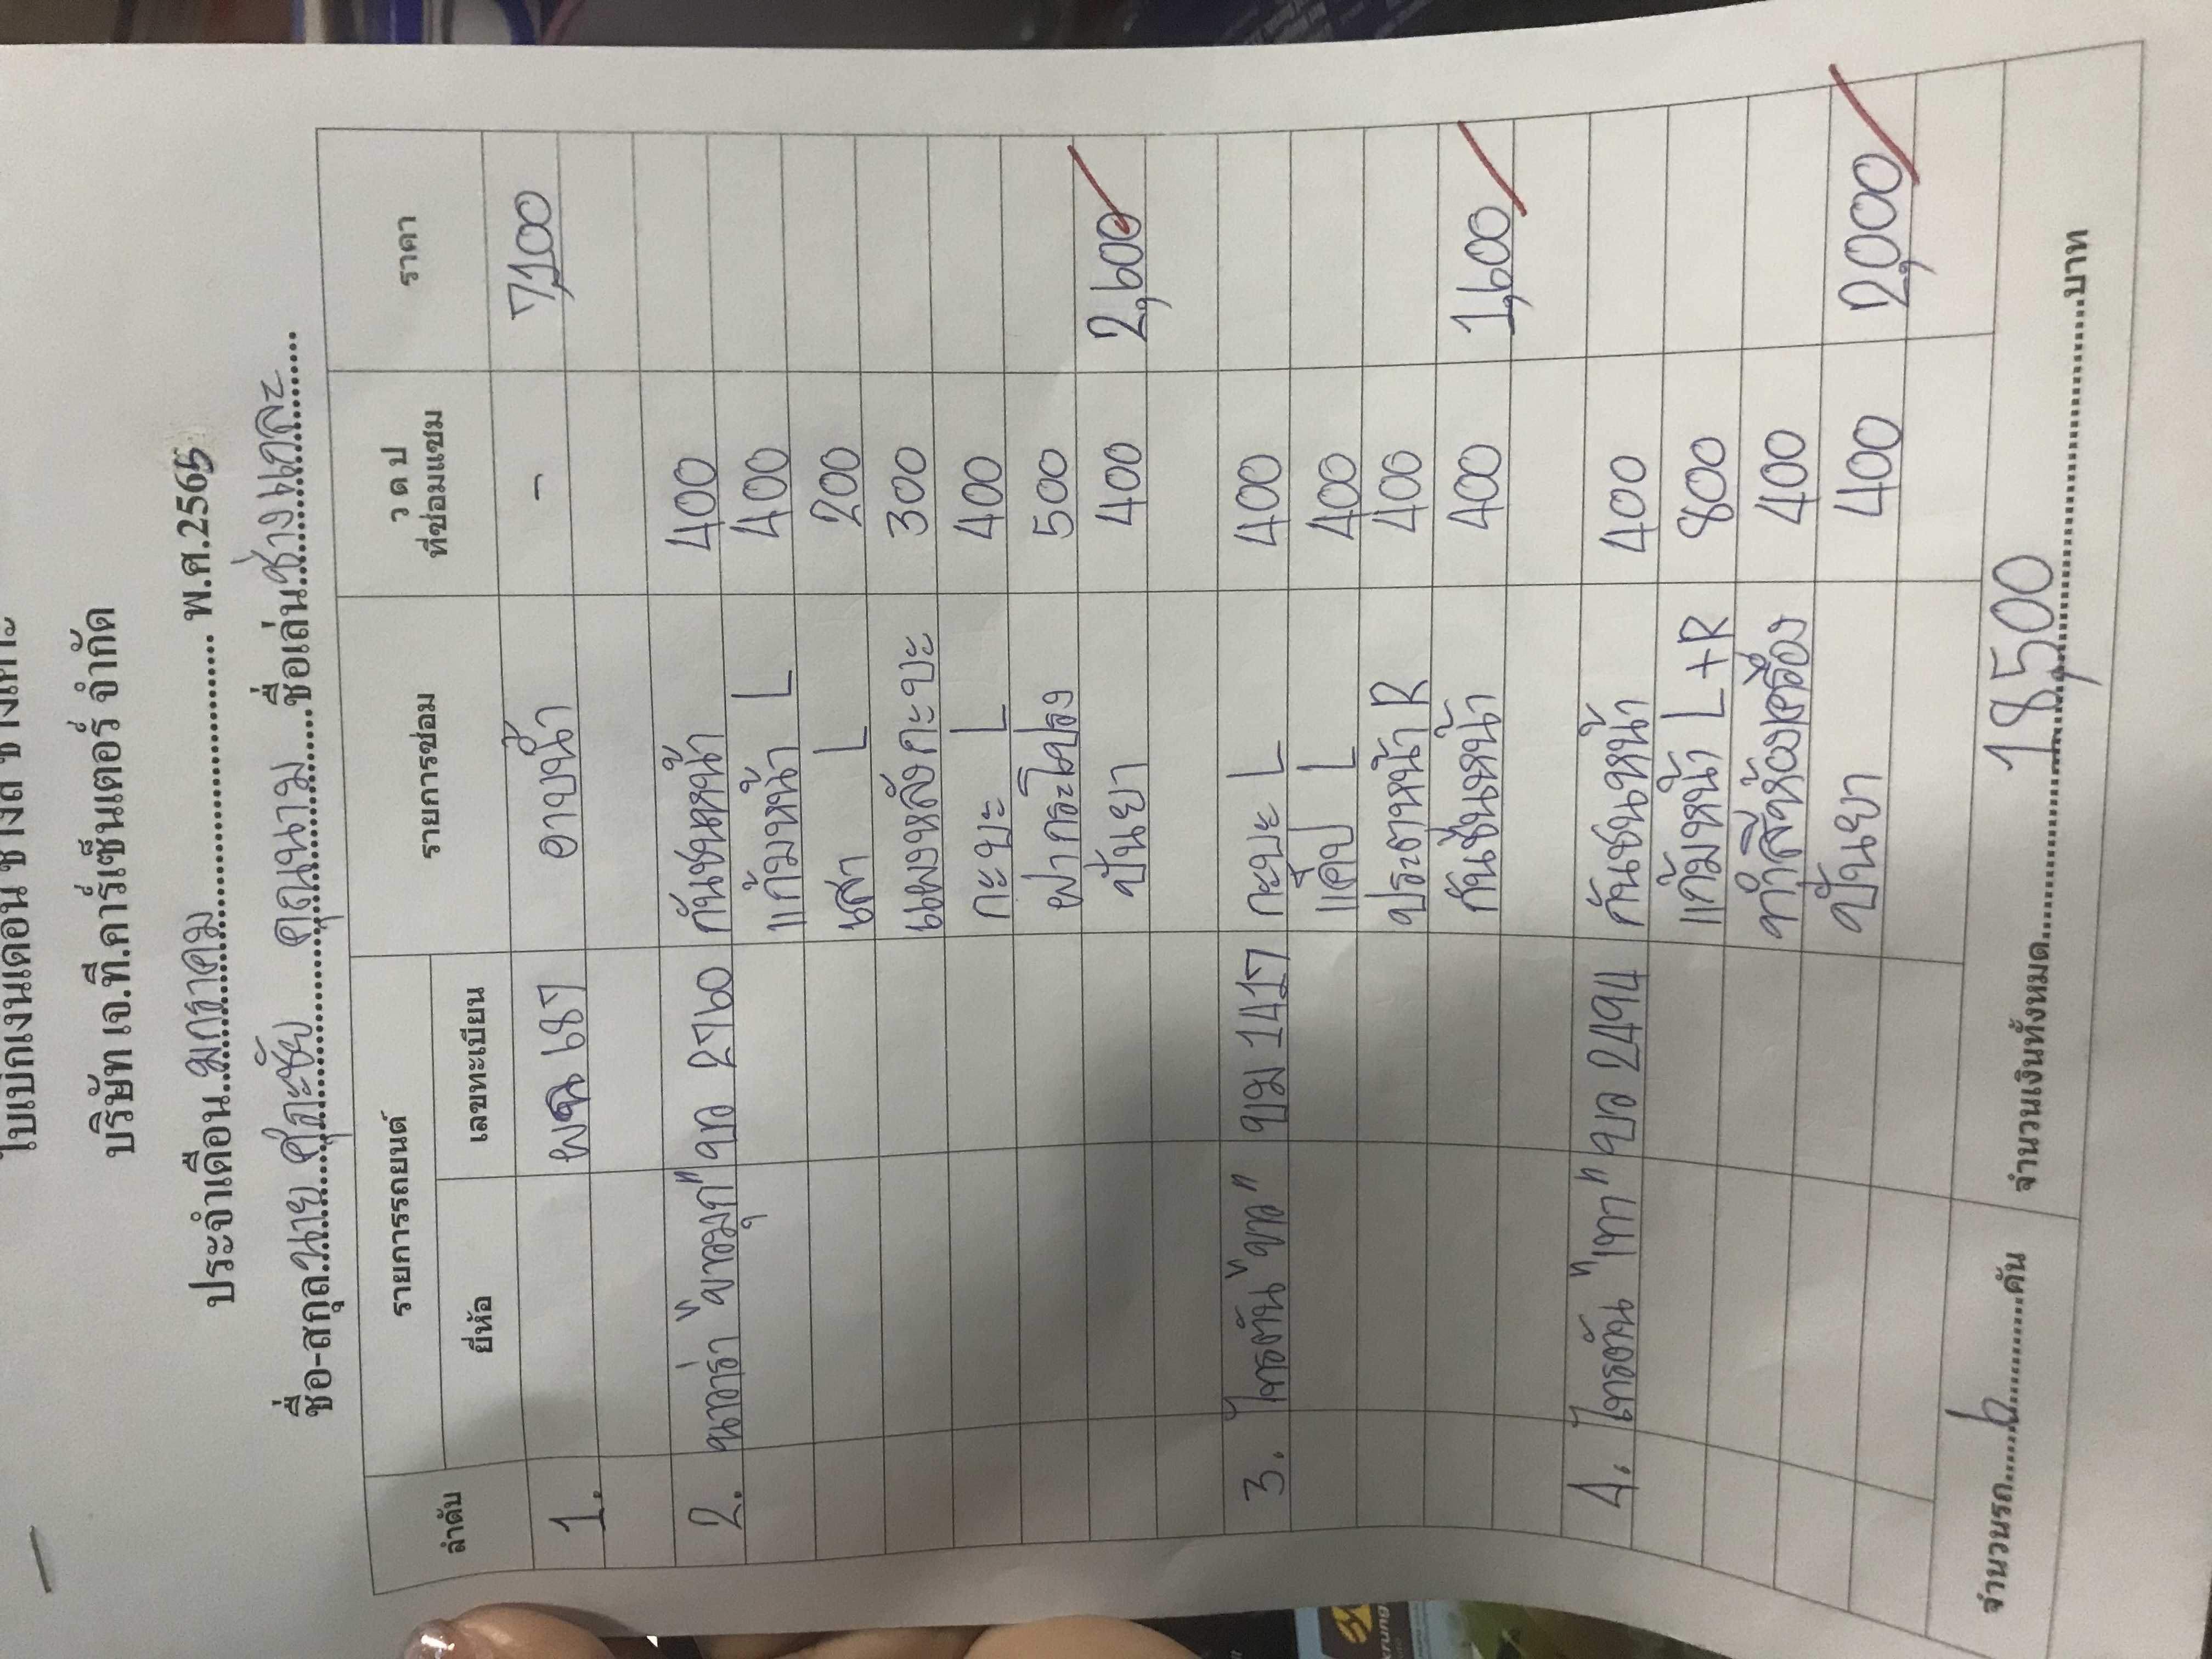 ใบเบิกเงินเดือน ช่างสี ช่างเคาะ
บริษัท เจ.ที.คาร์เซ็นเตอร์ จำกัด
ประจำเดือน มกราคม พ.ศ.2565
ชื่อ-สกุล นาย ศุภะชัย คุณนาม ชื่อเล่น ช่างแกละ
ลำดับ รายการรถยนต์ รายการซ่อม ว ด ป ที่ซ่อมแซม ราคา
ยี่ห้อ เลขทะเบียน
1. ผฉ 687 อาบน้ำ - 7,100
2. นาวาร่า "ขาวมุก" บอ 2760 กันชนหน้า 400
แก้มหน้า L 400
เสา L 200
แผงหลังกะบะ 300
กะบะ L 400
ฝากระโปรง 500
ปั่นยา 400 2,600
3. ไทรตัน "ขาว" บม 1417 กะบะ L 400
แค็ป L 400
ประตูหน้า R 400
กันชนหน้า 400 1,600
4. ไทรตัน "เทา" บอ 2494 กันชนหน้า 400
แก้มหน้า L+R 800
ทำสีห้องเครื่อง 400
ปั่นยา 400 2,000
จำนวนรถ 6 คัน จำนวนเงินทั้งหมด 18,500 บาท